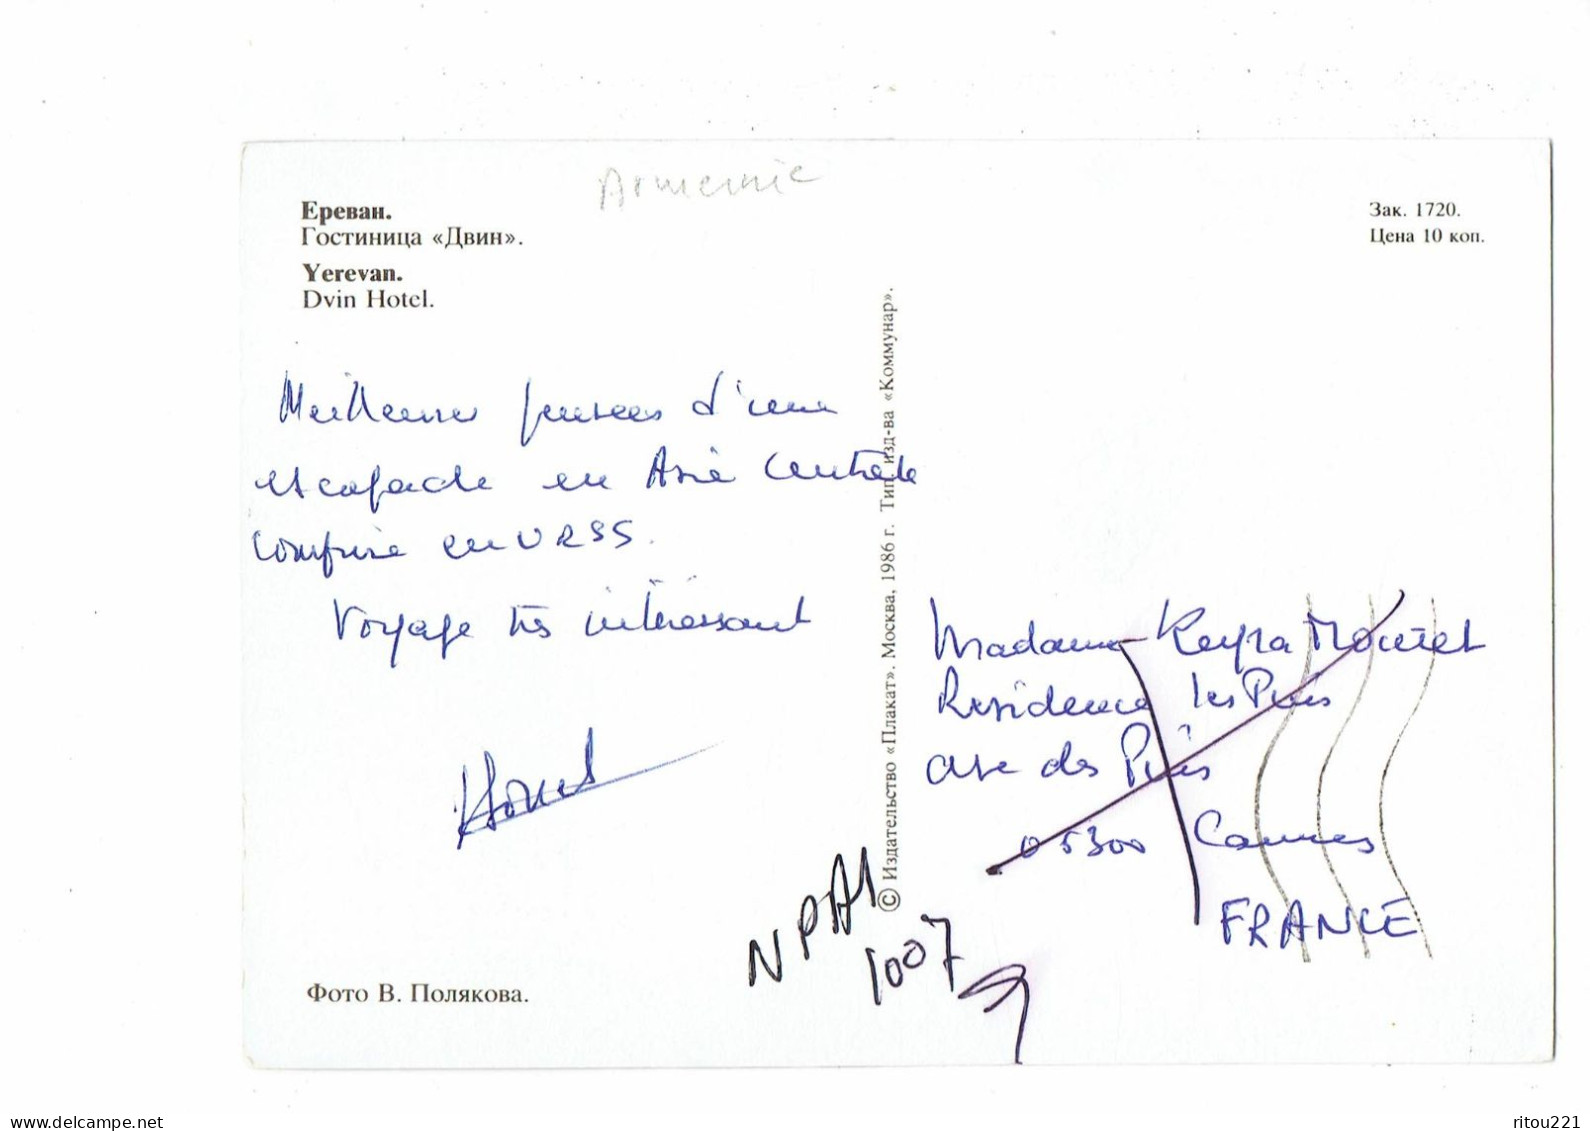 Armenie
Ереван.
Гостиница «Двин».
Yerevan.
Dvin Hotel.
Зак. 1720.
Цена 10 коп.
Meilleures pensées d'une
escapade en Asie Centrale
comprise en URSS.
Voyage très intéressant
© Издательство «Плакат». Москва, 1986 г. Тип. изд-ва «Коммунар».
Madame
Residence les Pins
Ave des Pins
Cannes
FRANCE
NPAI
1007
Фото В. Полякова.
https://www.delcampe.net
ritou221